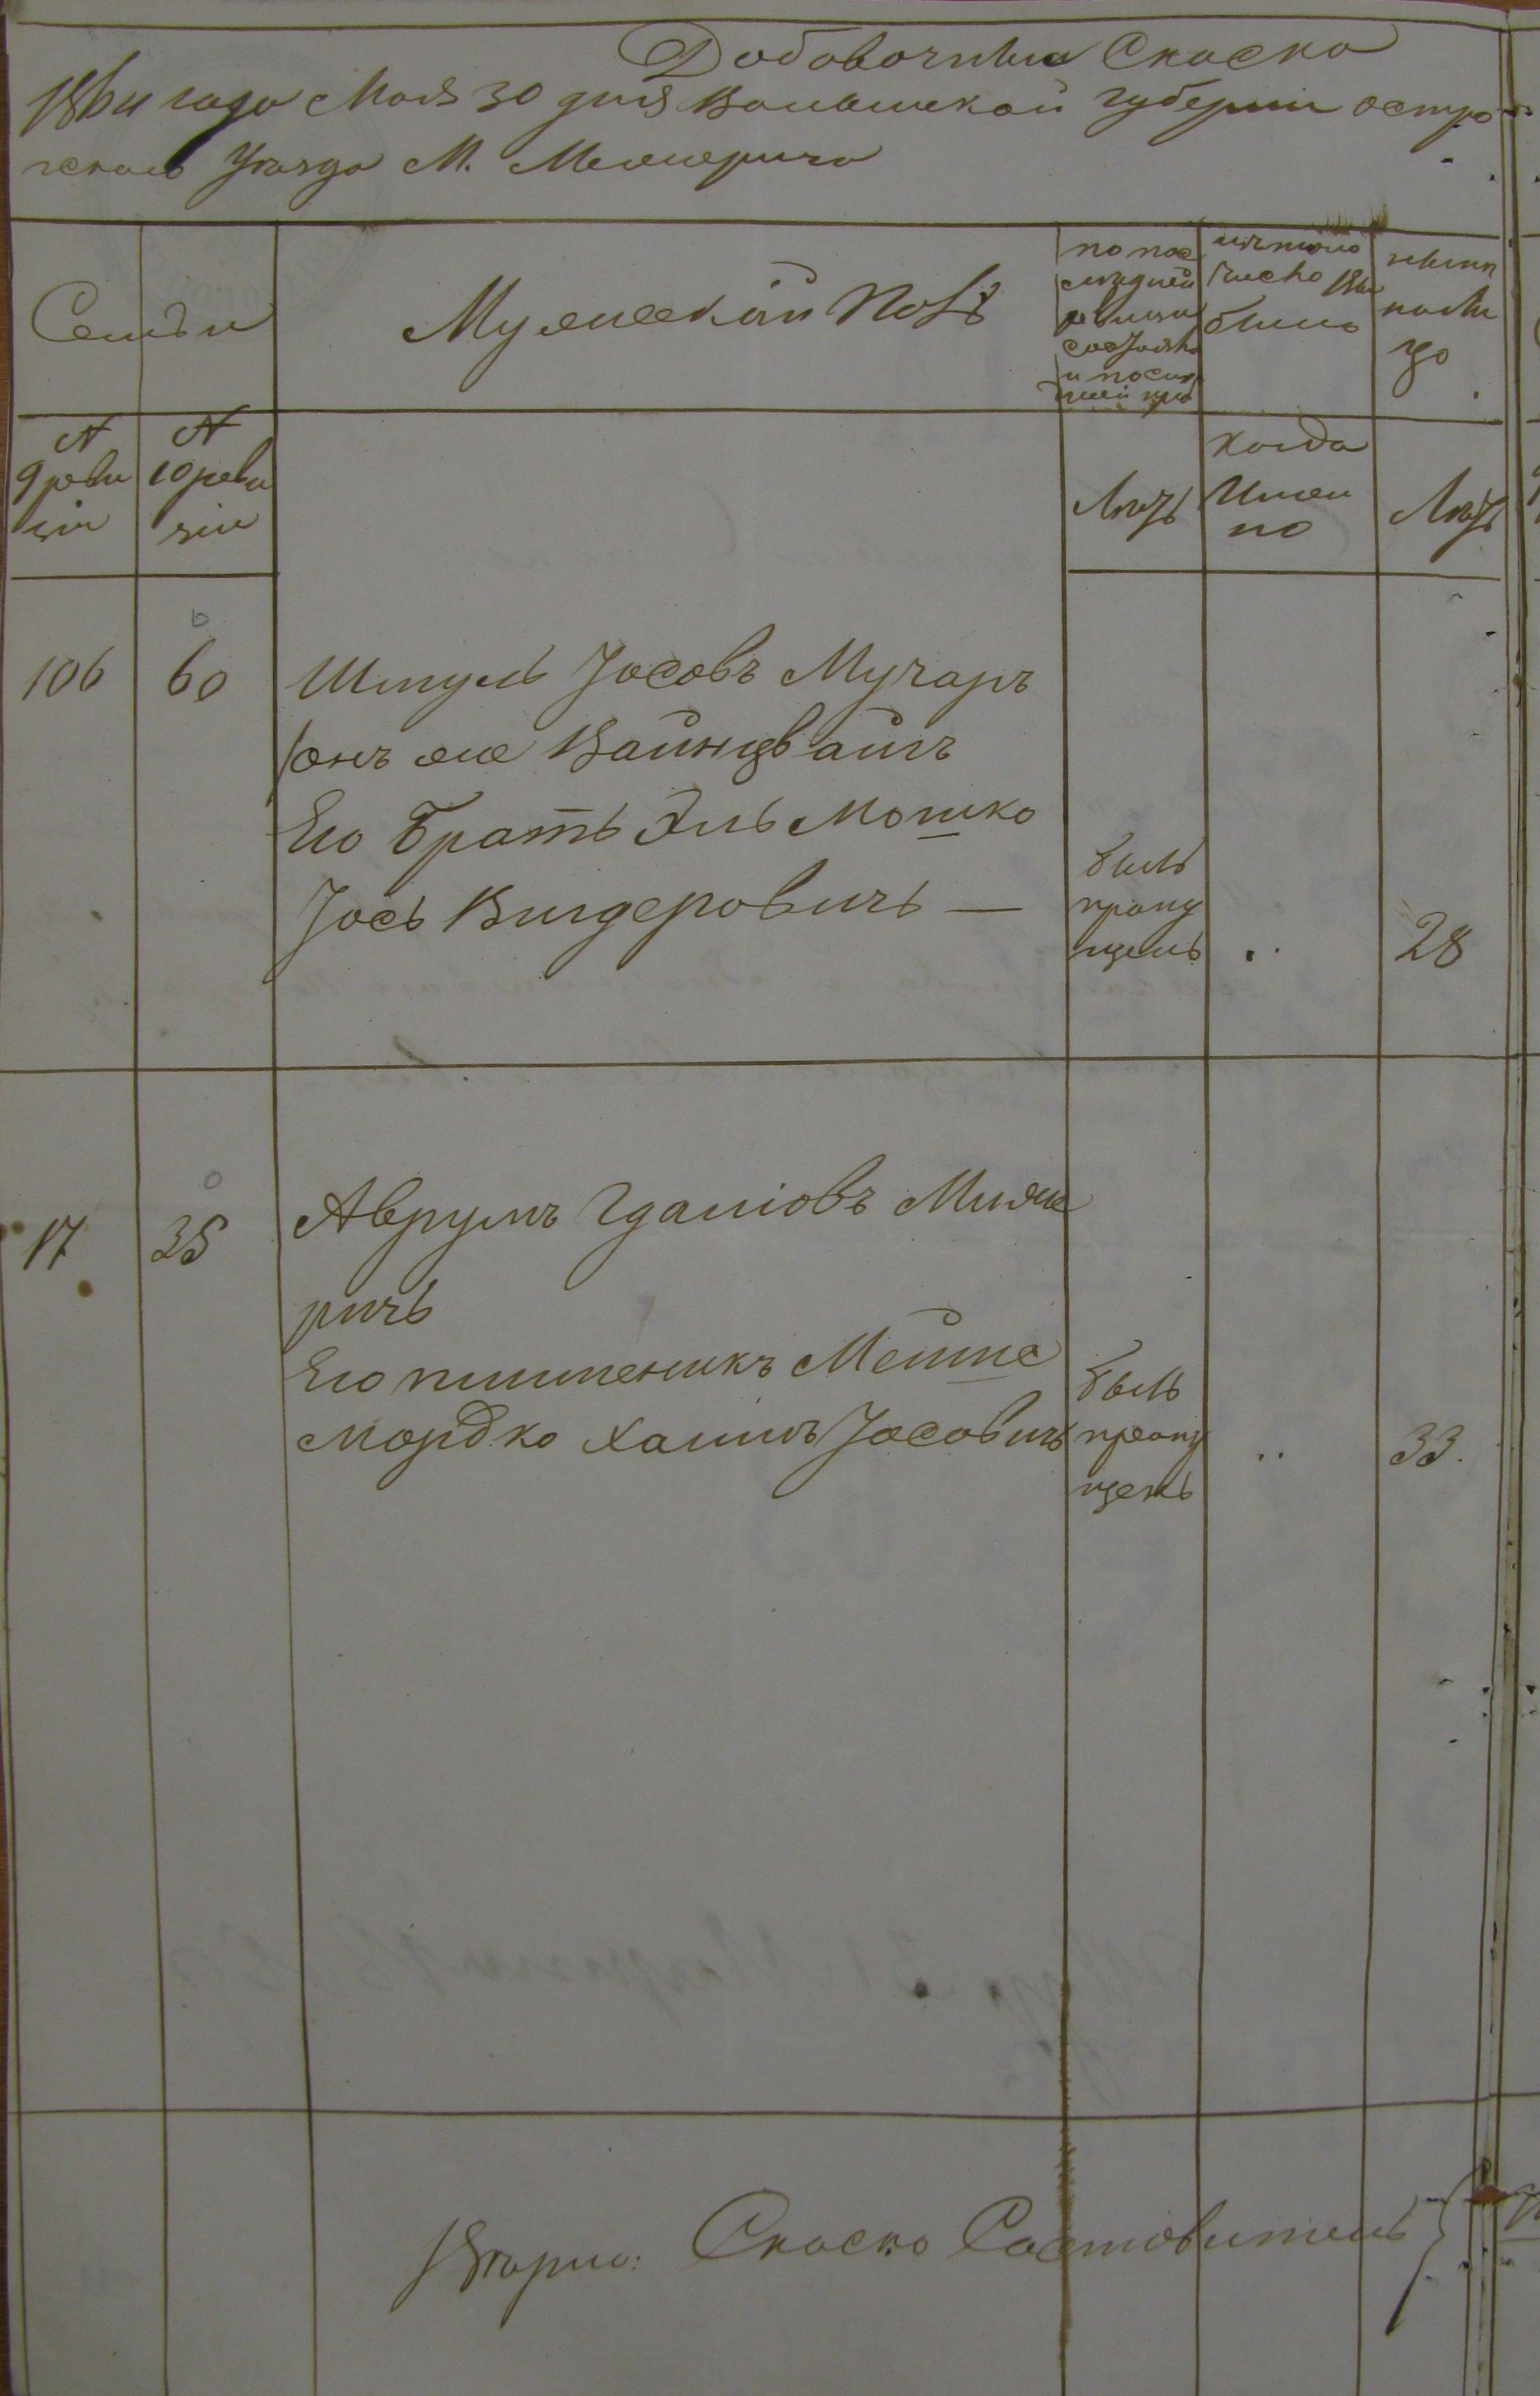 Добовочная Скаска
1864 года Мая 30 дня Волынской губернии остро
жскаго уезда М. Межерича
Семьи
Мужеский полъ
по пос
следней
ревизии
состояло
и после
оной
изъ того
число
было
ныне
на ли
цо
N
9 реви
зіи
N
10 реви
зіи
Летъ
когда
имен
но
Летъ
106
60
Шмуль Іосовъ Мучаръ
онъ же Вайнцвайгъ
Его братъ Эль Мошко
Іось Видеровичъ —
былъ
пропу
щенъ
..
28
17
35
Аврумъ Гдаліовъ Миже
ричъ
Его племеникъ Мейше
Мордко Хаимъ Іосовичъ
былъ
пропу
щенъ
..
33.
Верно: Скаско Составитель